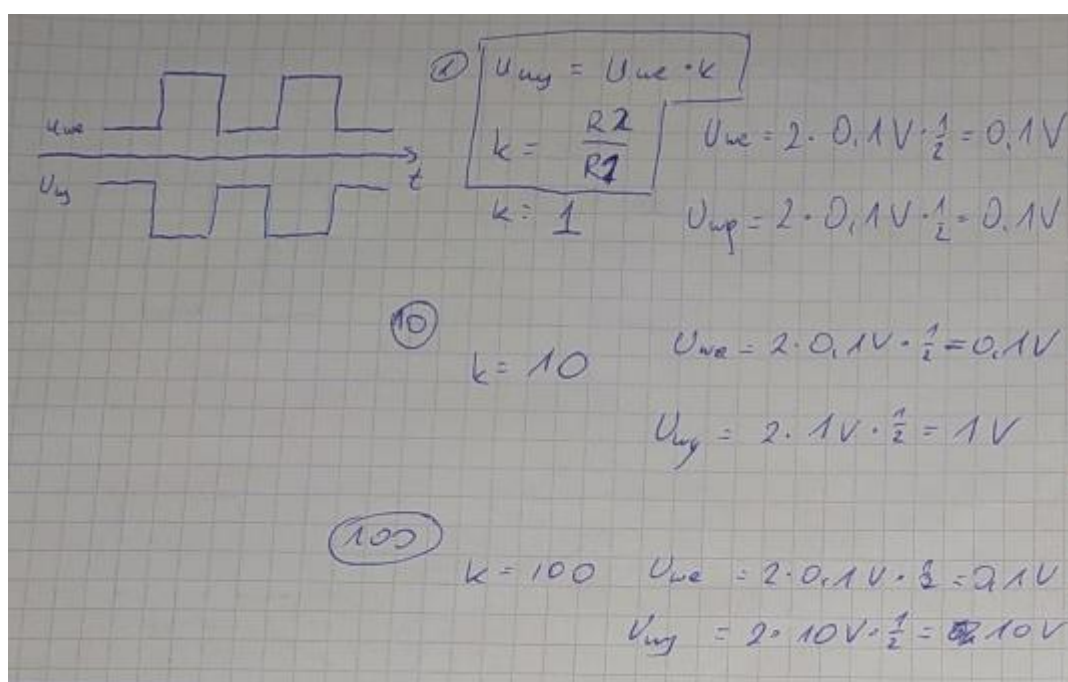 Uwe
t
Uwy
① Uwy = Uwe · k
k = R2/R1
k = 1
Uwe = 2 · 0,1V · 1/2 = 0,1V
Uwy = 2 · 0,1V · 1/2 = 0,1V
10
k = 10
Uwe = 2 · 0,1V · 1/2 = 0,1V
Uwy = 2 · 1V · 1/2 = 1V
100
k = 100 Uwe = 2 · 0,1V · 1/2 = 0,1V
Uwy = 2 · 10V · 1/2 = 10V